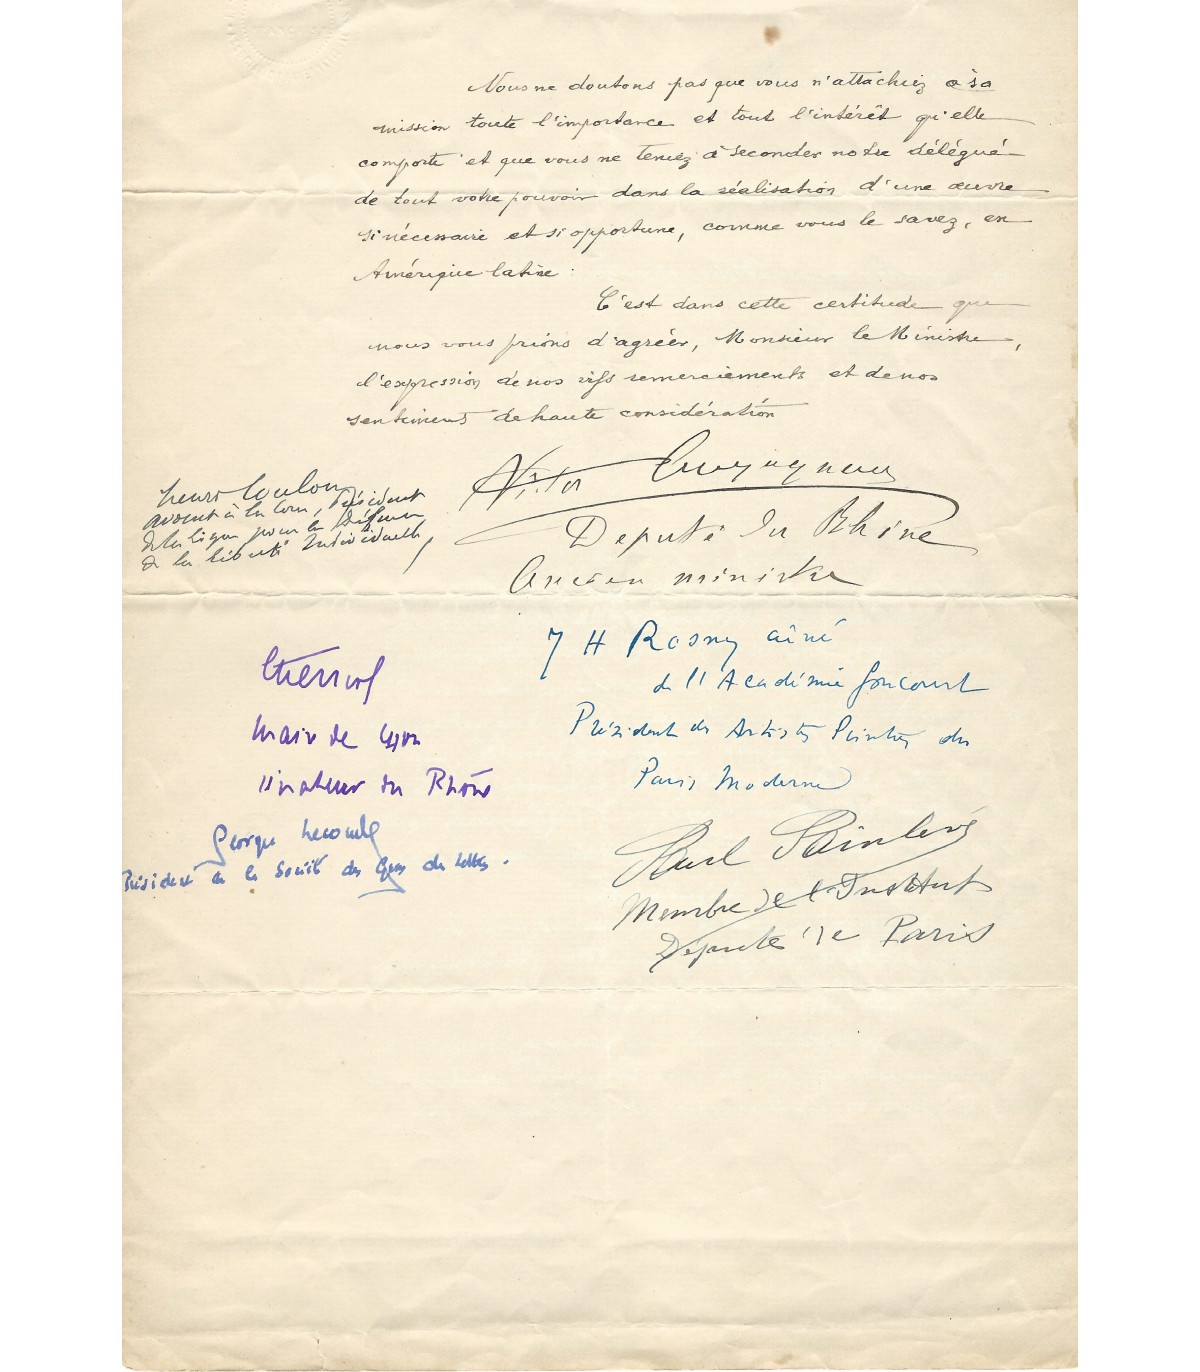 Nous ne doutons pas que vous n'attachiez à sa
mission toute l'importance et tout l'intérêt qu'elle
comporte et que vous ne teniez à seconder notre délégué
de tout votre pouvoir dans la réalisation d'une œuvre
si nécessaire et si opportune, comme vous le savez, en
Amérique latine.
C'est dans cette certitude que
nous vous prions d'agréer, Monsieur le Ministre,
l'expression de nos vifs remerciements et de nos
sentiments de haute considération
Victor Augagneur
Député du Rhône
Ancien ministre
Henri Coulon
avocat à la Cour, Président
de la ligue pour la Défense
de la liberté Individuelle,
J H Rosny aîné
de l'Académie Goncourt
Président des Artistes Peintres du
Paris Moderne
Herriot
Maire de Lyon
sénateur du Rhône
Georges Lecomte
Président de la Société des Gens de Lettres.
Paul Painlevé
Membre de l'Institut
Député de Paris